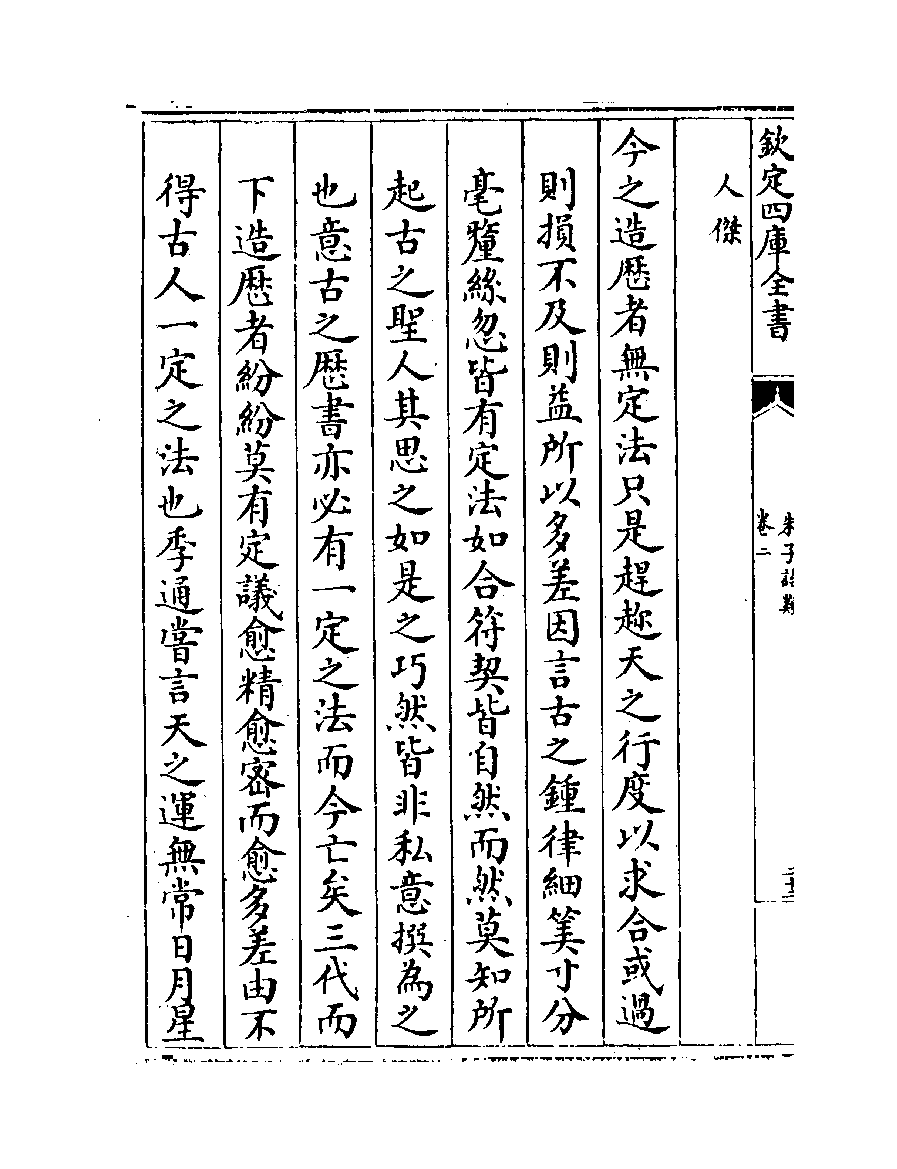 欽定四庫全書
朱子語類
卷二
人傑
今之造厯者無定法只是趕趂天之行度以求合或過
則損不及則益所以多差因言古之鍾律細筭寸分
毫釐絲忽皆有定法如合符契皆自然而然莫知所
起古之聖人其思之如是之巧然皆非私意撰為之
也意古之厯書亦必有一定之法而今亡矣三代而
下造厯者紛紛莫有定議愈精愈密而愈多差由不
得古人一定之法也季通嘗言天之運無常日月星